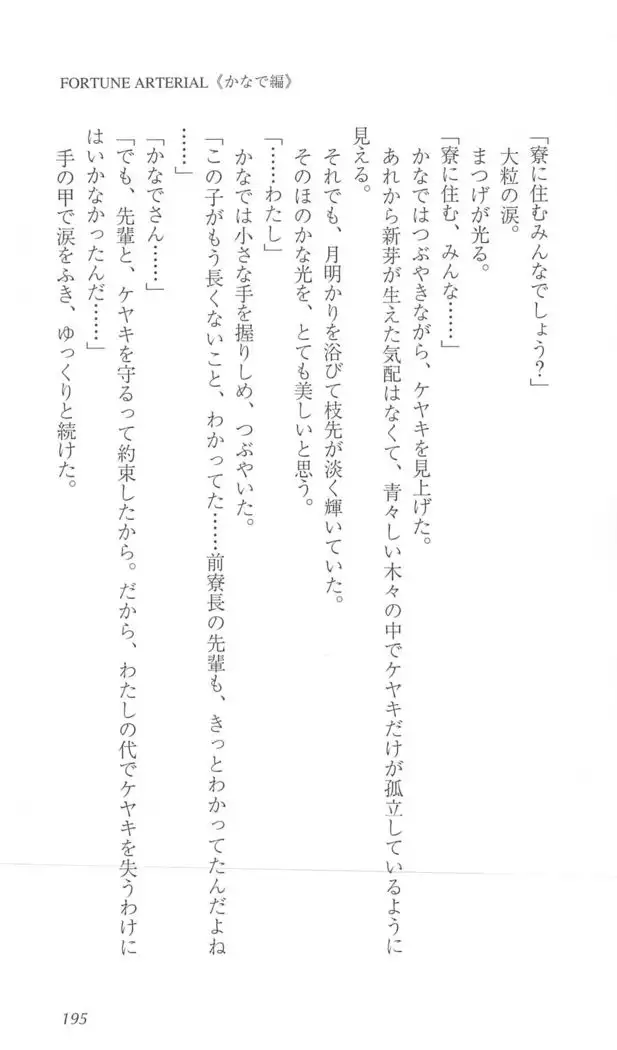 FORTUNE ARTERIAL《かなで編》
「寮に住むみんなでしょう？」
大粒の涙。
まつげが光る。
「寮に住む、みんな……」
かなではつぶやきながら、ケヤキを見上げた。
あれから新芽が生えた気配はなくて、青々しい木々の中でケヤキだけが孤立しているように
見える。
それでも、月明かりを浴びて枝先が淡く輝いていた。
そのほのかな光を、とても美しいと思う。
「……わたし」
かなでは小さな手を握りしめ、つぶやいた。
「この子がもう長くないこと、わかってた……前寮長の先輩も、きっとわかってたんだよね
……」
「かなでさん……」
「でも、先輩と、ケヤキを守るって約束したから。だから、わたしの代でケヤキを失うわけに
はいかなかったんだ……」
手の甲で涙をふき、ゆっくりと続けた。
195